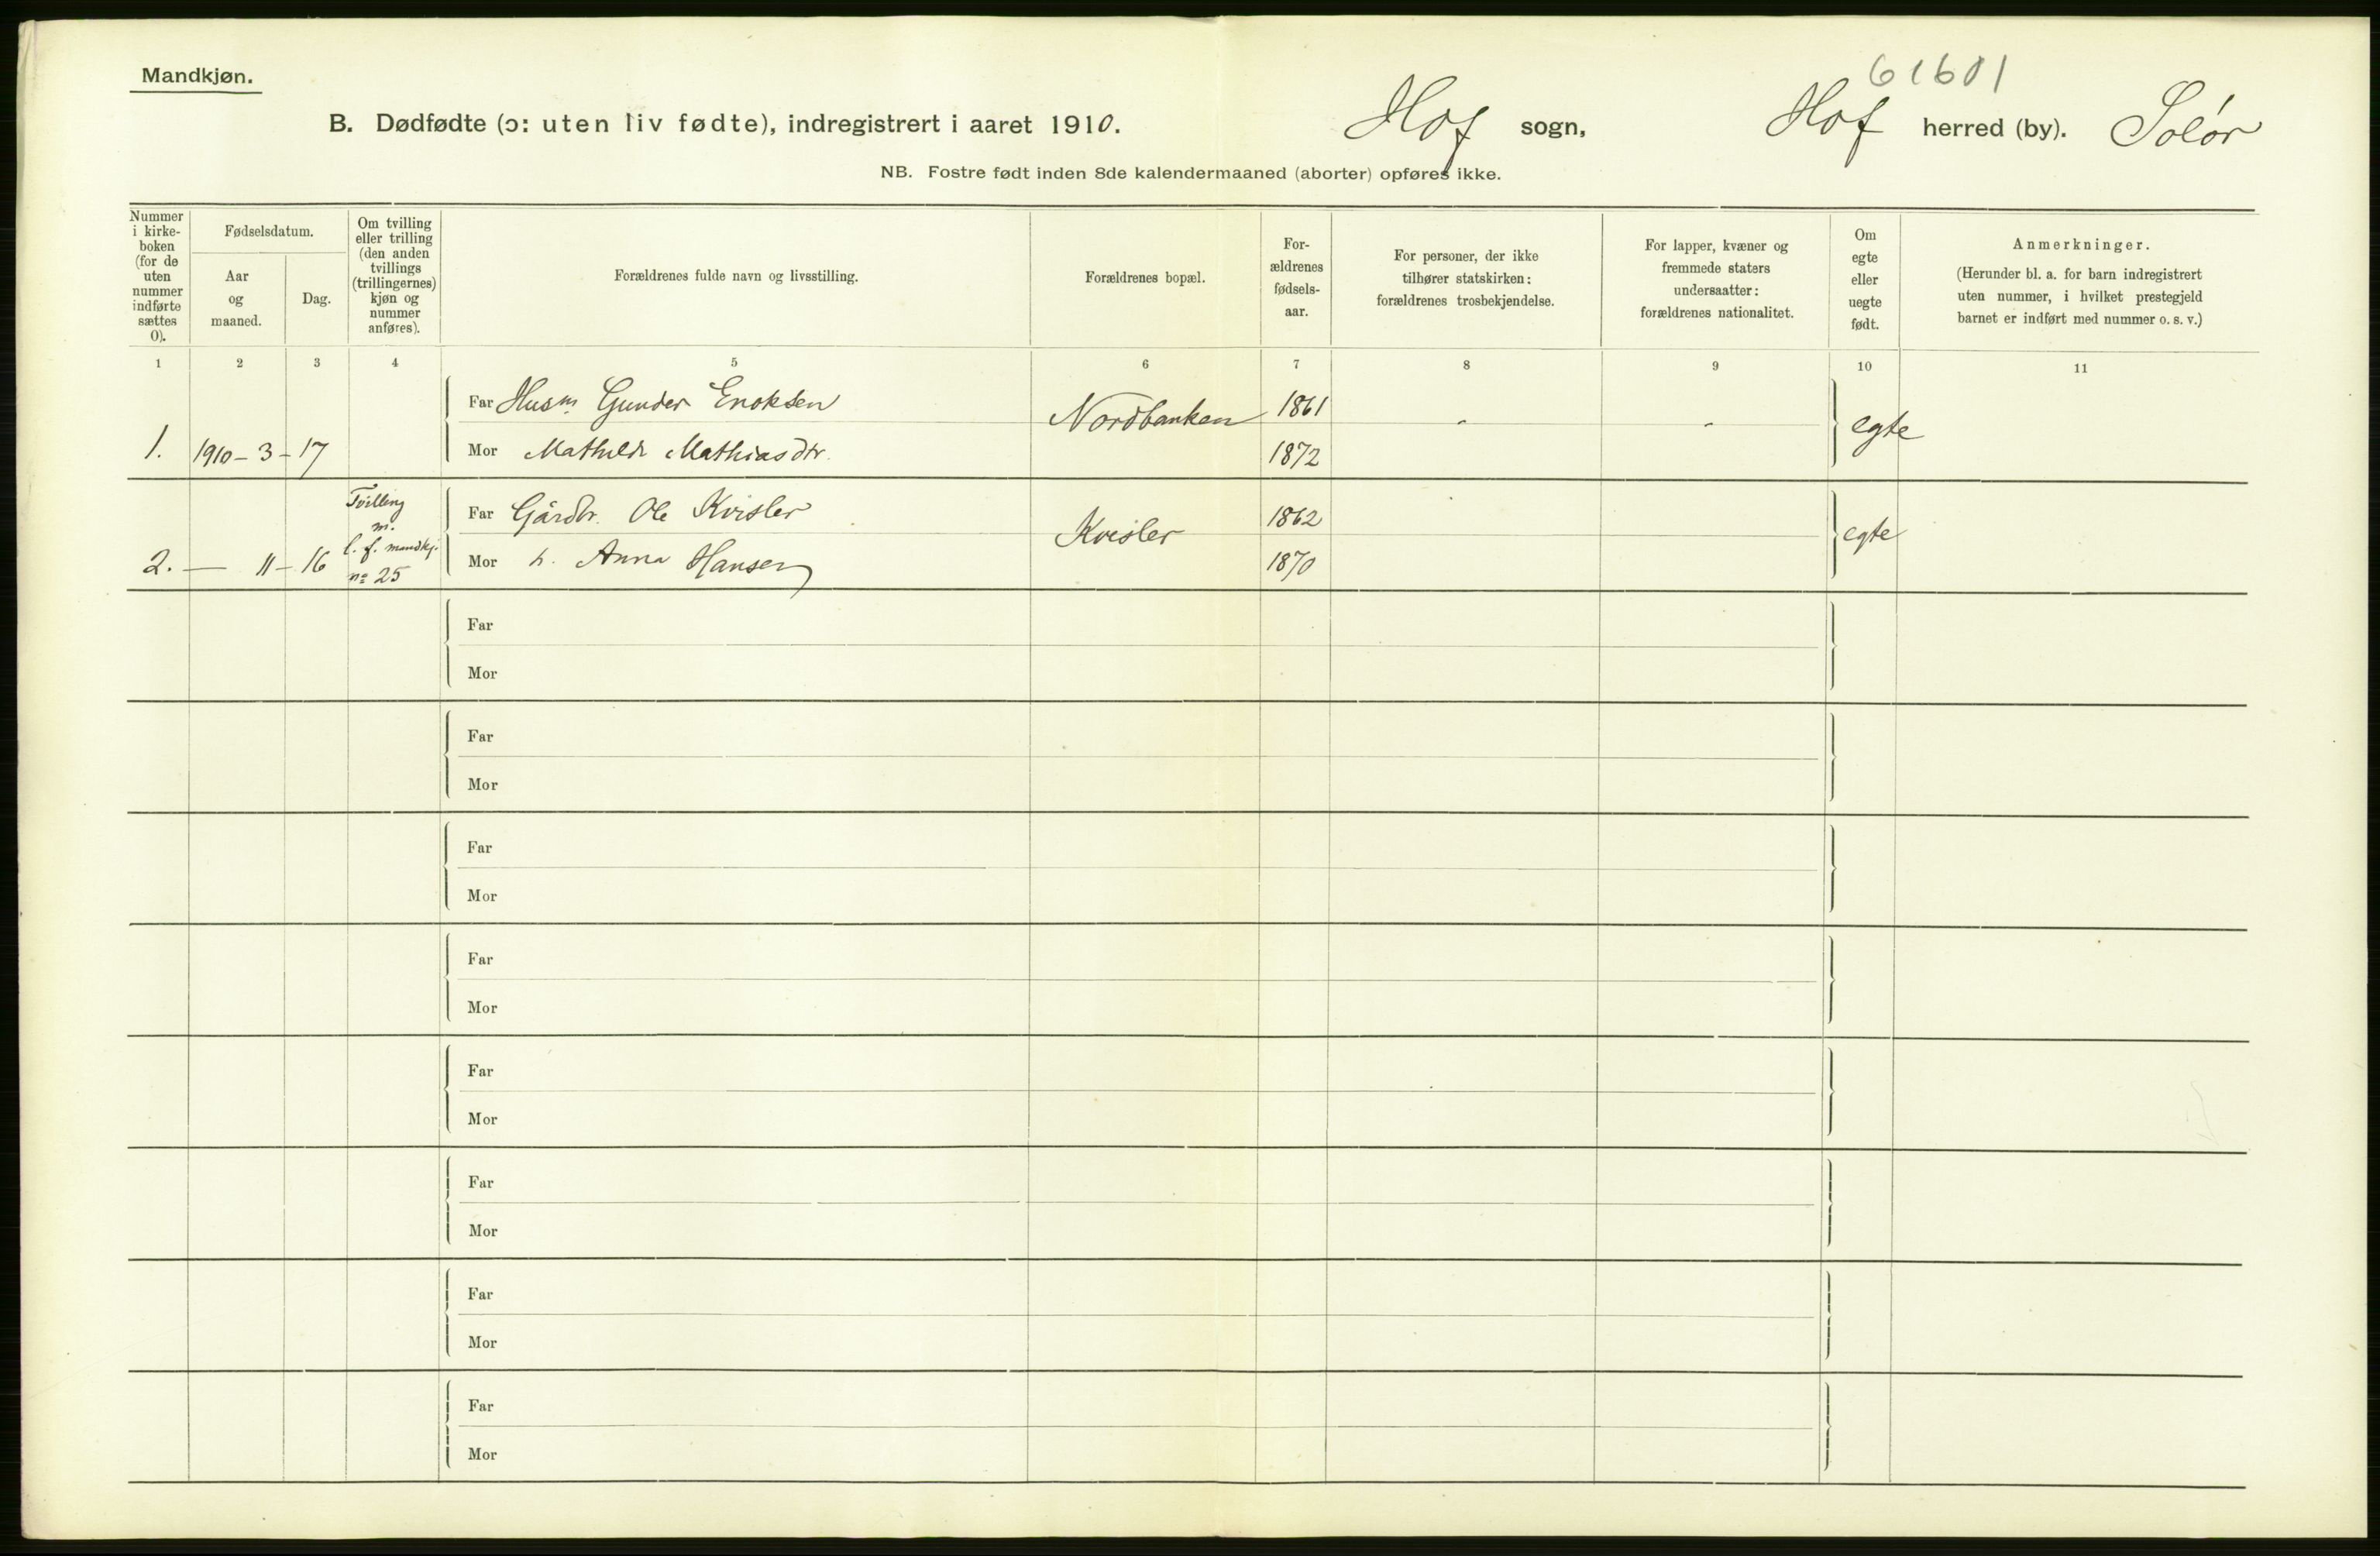 Mandkjøn.
61601
B. Dødfødte (ɔ: uten liv fødte), indregistrert i aaret 1910. Hof sogn, Hof herred (by). Solør
NB. Fostre født inden 8de kalendermaaned (aborter) opføres ikke.
Nummer
i kirke-
boken
(for de
uten
nummer
indførte
sættes
0).
Fødselsdatum.
Aar
og
maaned.
Dag.
Om tvilling
eller trilling
(den anden
tvillings
(trillingernes)
kjøn og
nummer
anføres).
Forældrenes fulde navn og livsstilling.
Forældrenes bopæl.
For-
ældrenes
fødsels-
aar.
For personer, der ikke
tilhører statskirken:
forældrenes trosbekjendelse.
For lapper, kvæner og
fremmede staters
undersaatter:
forældrenes nationalitet.
Om
egte
eller
uegte
født.
Anmerkninger.
(Herunder bl. a. for barn indregistrert
uten nummer, i hvilket prestegjeld
barnet er indført med nummer o. s. v.)
1 2 3 4 5 6 7 8 9 10 11
Far Husm. Gunder Enoksen Nordbanken 1861 - - egte
1. 1910 - 3 - 17 Mor Mathilde Mathiasdtr. 1872
Tvilling
m.
l. f. mandkj.
no 25
Far Gårdbr. Ole Kvisler Kvisler 1862 egte
2. — 11 - 16 Mor h. Anna Hansen 1870
Far
Mor
Far
Mor
Far
Mor
Far
Mor
Far
Mor
Far
Mor
Far
Mor
Far
Mor